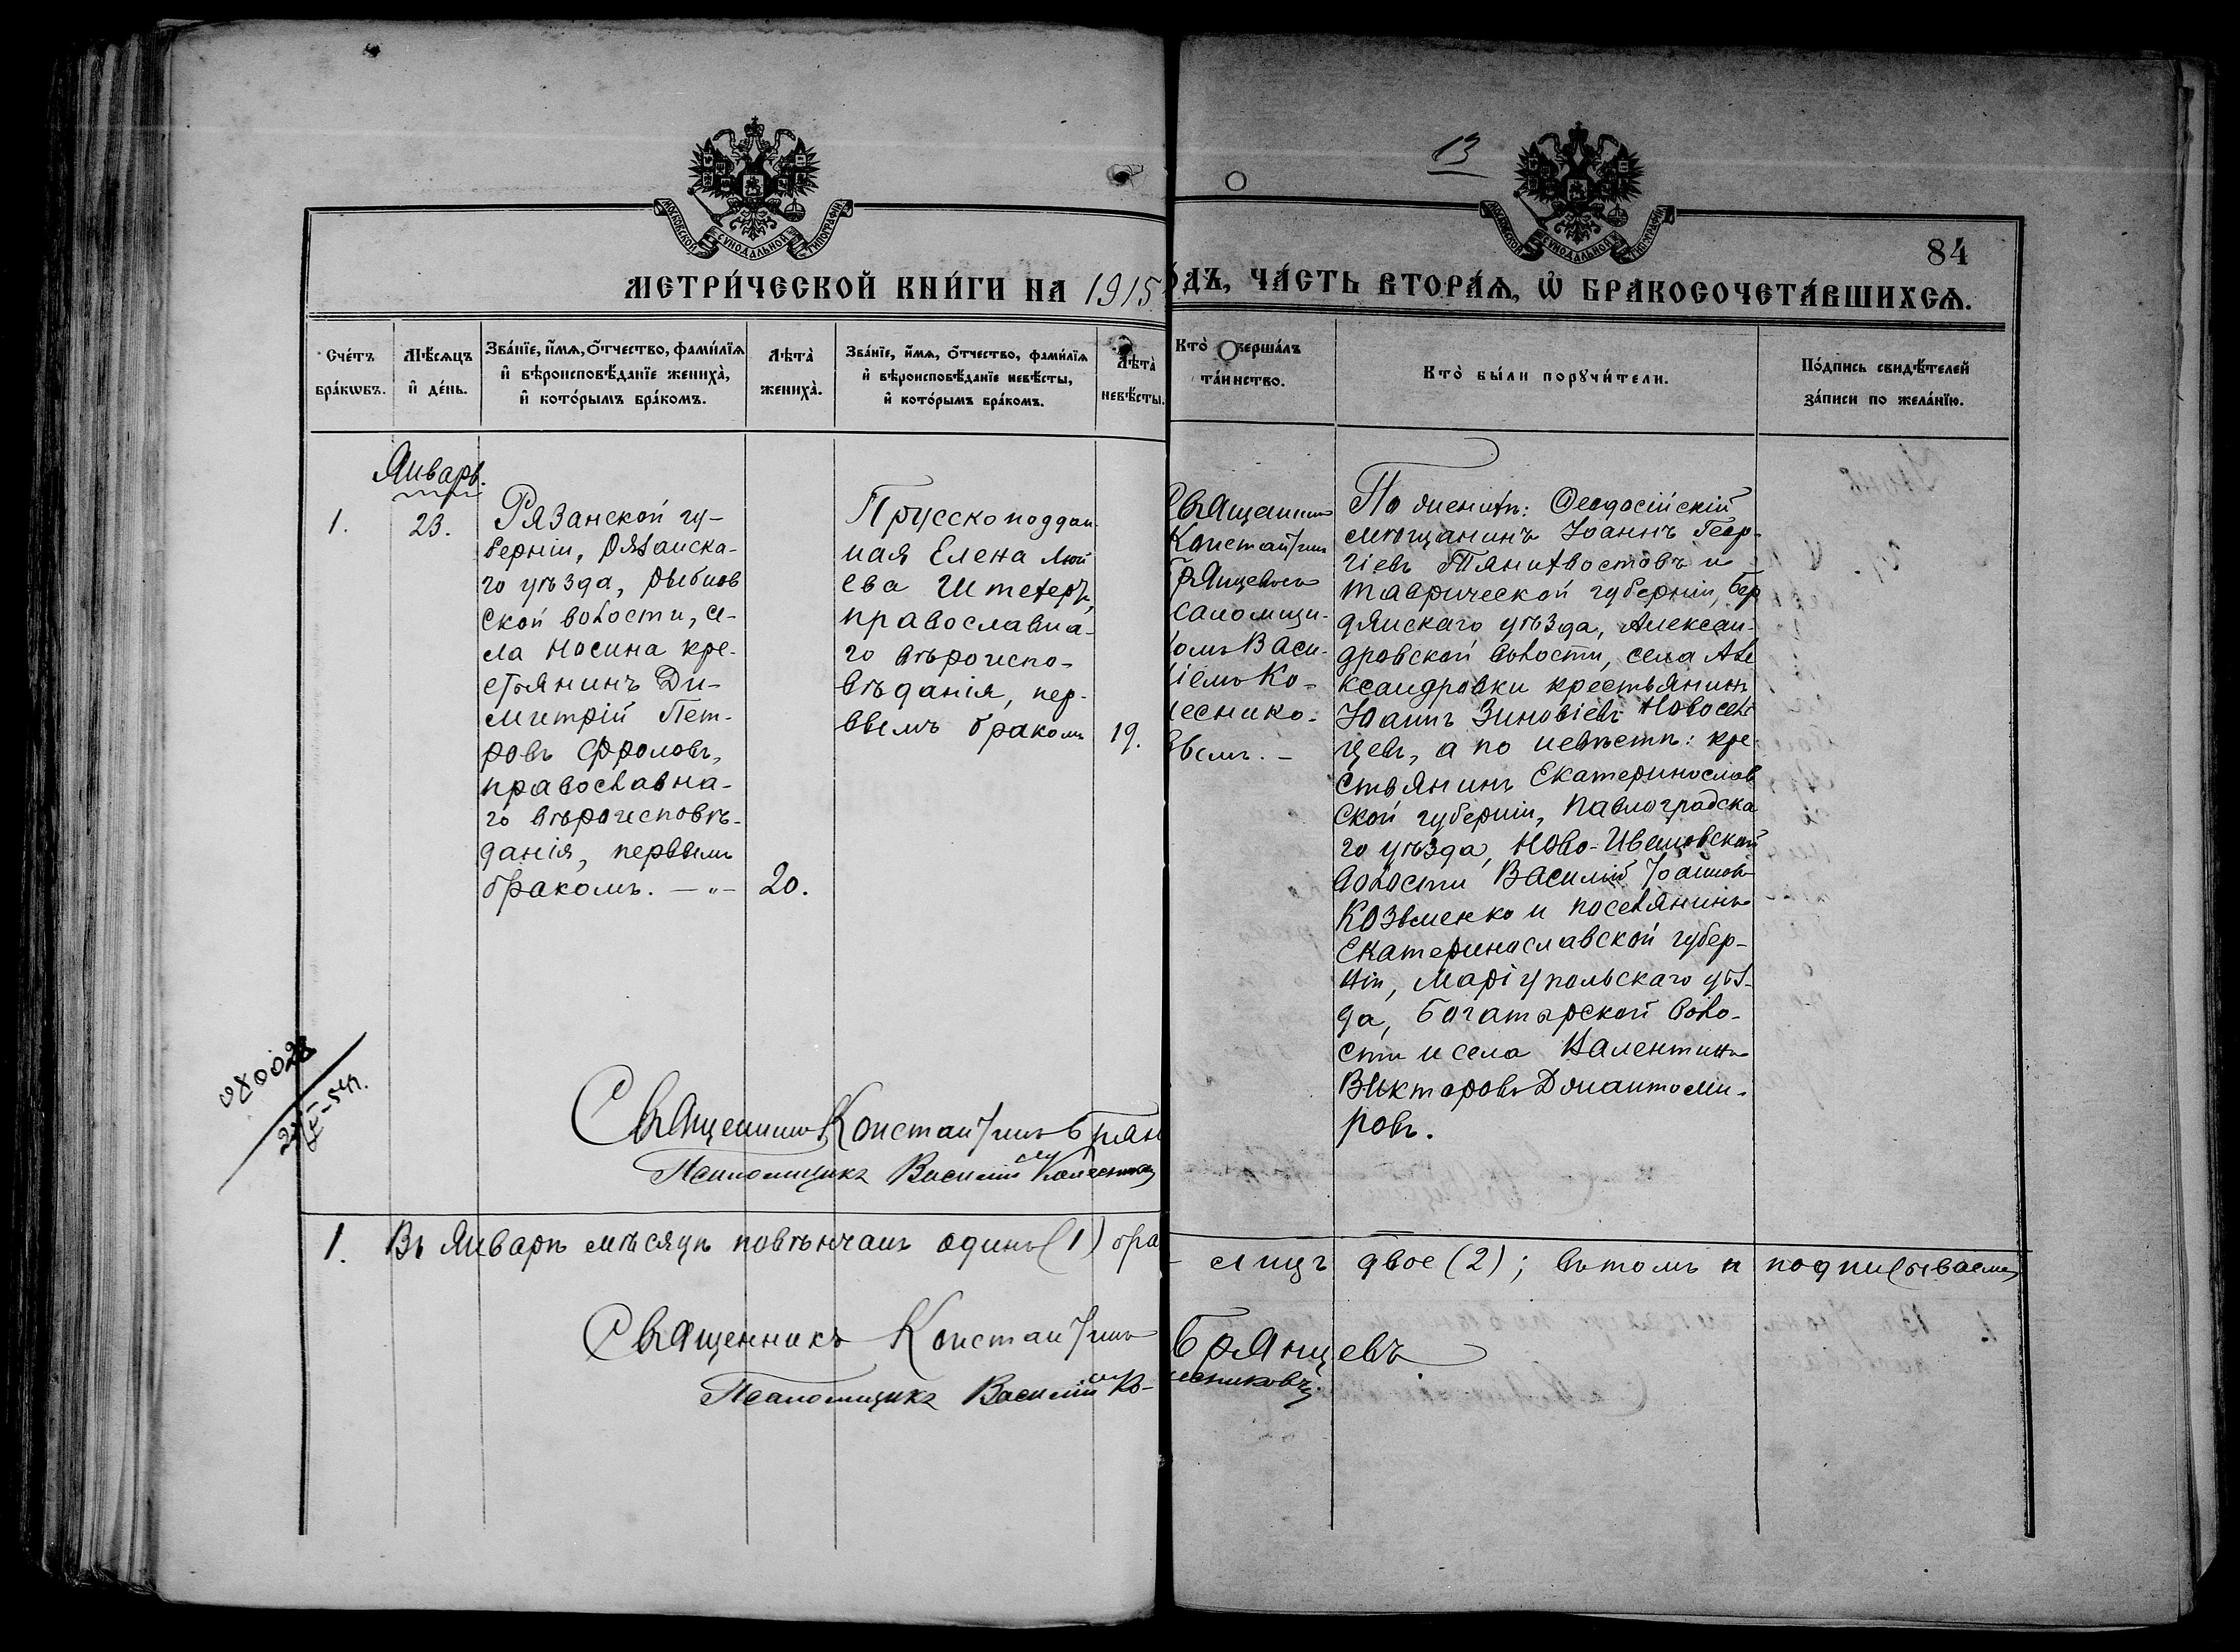 13
МОСКОВСКОЙ СѴНОДАЛЬНОЙ ТИПОГРАФІИ
МОСКОВСКОЙ СѴНОДАЛЬНОЙ ТИПОГРАФІИ
84
МЕТРИ́ЧЕСКОЙ КНИ́ГИ НА 1915
О́ДЪ, ЧА́СТЬ ВТОРА́Ѧ, Ѽ БРАКОСОЧЕТА́ВШИХСѦ.
Сче́тъ
бра́кѡвъ.
Мѣ́сѧцъ
и҆ де́нь.
Зва́нїе, и҆́мѧ, о҆́тчество, фами́лїѧ
и҆ вѣроисповѣ́данїе жениха̀,
и҆ кото́рымъ бра́комъ.
Лѣ́та̀
жениха̀.
Зва́нїе, и҆́мѧ, о҆́тчество, фами́лїѧ
и҆ вѣроисповѣ́данїе невѣ́сты,
и҆ кото́рымъ бра́комъ.
Лѣ́та̀
невѣ́сты.
Кто̀ вершáлъ
та́инство.
Кто̀ бы́ли порꙋчи́тели.
По́дпись свидѣ́телей
за́писи по жела́нїю.
Январь.
1.
23.
Рязанской гу-
берніи, Рязанска-
го уѣзда, Рыбнов
ской волости, се-
ла Носина кре-
стьянинъ Ди-
митрій Пет-
ровъ Фроловъ,
православна-
го вѣроисповѣ-
данія, первымъ
бракомъ. — „ —
20.
Прусскоподдан
ная Елена
ева Штехеръ,
православна-
го вѣроиспо-
вѣданія, пер-
вымъ бракомъ
19.
Священникъ
Константинъ
Брянцевъ съ
псаломщи-
комъ Васи-
ліемъ Ко-
леснико-
вымъ. —
По женихѣ: Ѳеодосійскій
мѣщанинъ Іоаннъ Геор-
гіевъ Тянихвостовъ и
Таврической губерніи, Бер
дянскаго уѣзда, Алексан-
дровской волости, села Але
ксандровки крестьянинъ
Іоаннъ Зиновіевъ Новосель
цевъ, а по невѣстѣ: кре-
стьянинъ Екатеринослав
ской губерніи, Павлоградска
го уѣзда, Ново-Ивановской
волости Василій Іоанновъ
Козьменко и поселянинъ
Екатеринославской губер-
ніи, Маріупольскаго уѣз-
да, Богатырской воло-
сти и села Валентинъ
Викторовъ
ровъ.
Священникъ Константинъ Брян
Псаломщикъ Василій Колесников
1. Въ Январѣ мѣсяцѣ повѣнчанъ одинъ (1) бра
- лицъ двое (2); въ томъ и подписываемся
Священникъ Константинъ Брянцевъ
Псаломщикъ Василій Колесниковъ